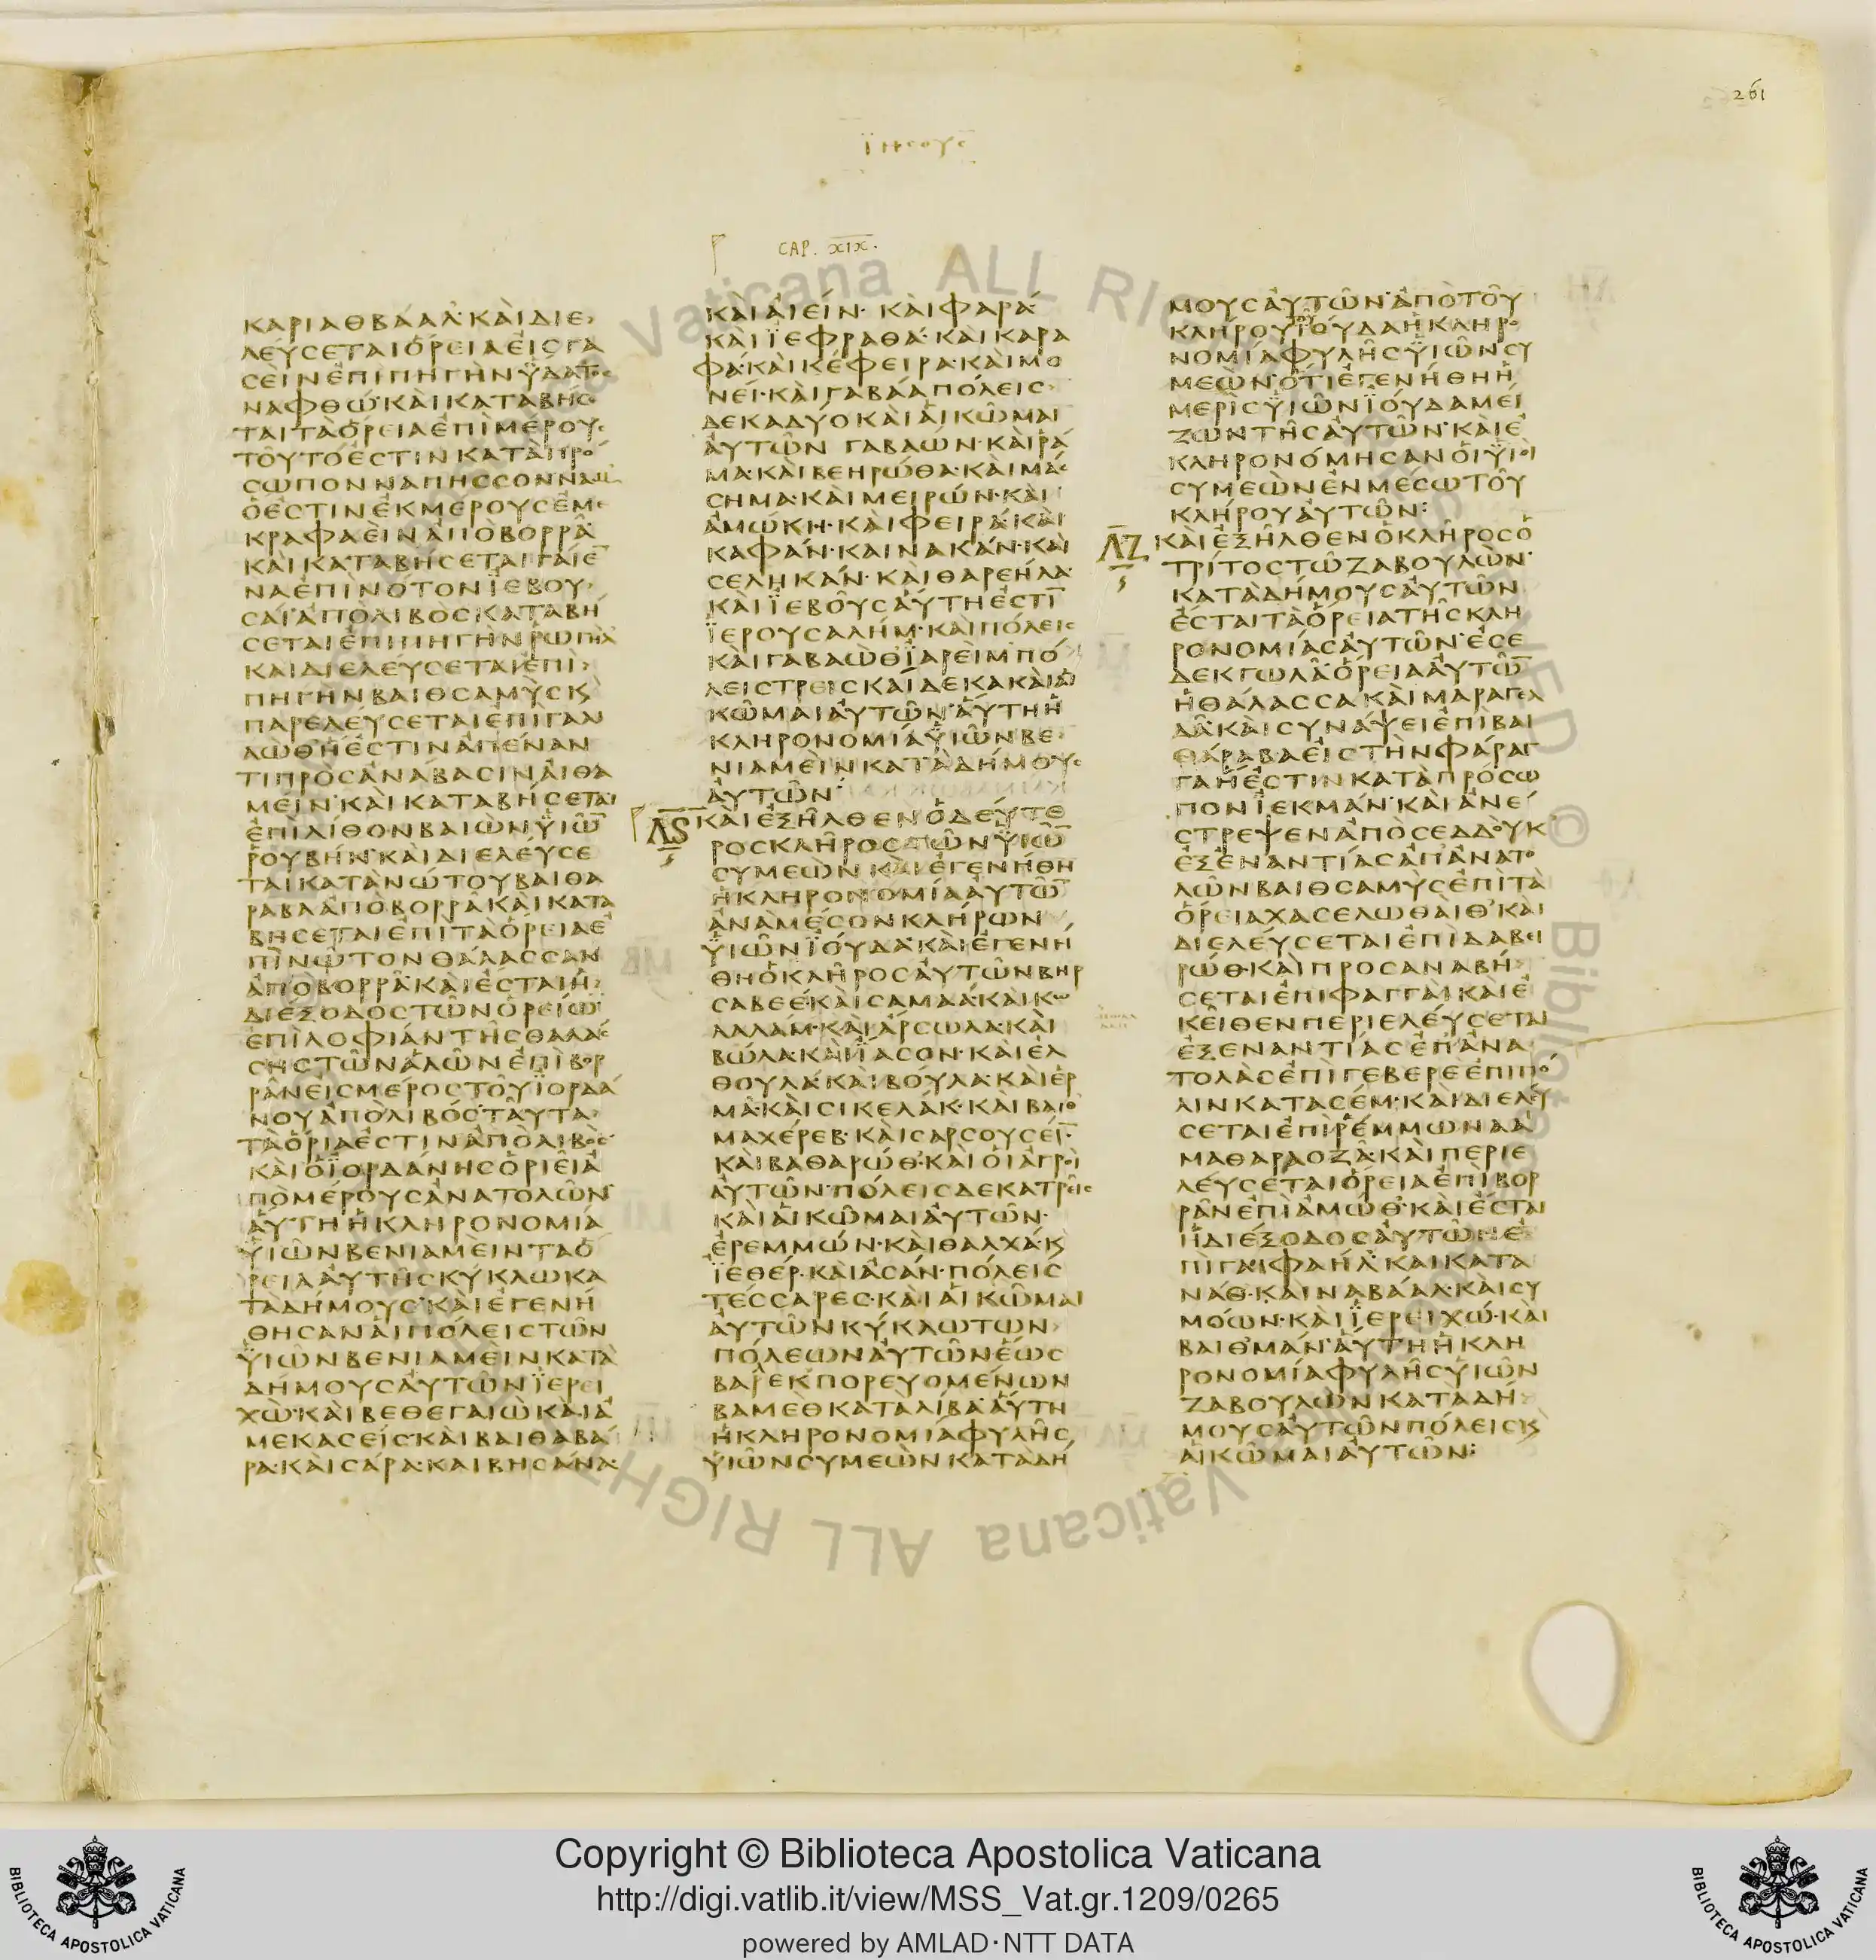 261
ἰησοῦς
CAP. XIX.
ΚΑΡΙΑΘΒΑΑΛ· ΚΑΙ ΔΙΕ
ΛΕΥΣΕΤΑΙ ΟΡΕΙΑ ΕΙΣ ΓΑ
ΣΕΙΝ ΕΠΙ ΠΗΓΗΝ ΥΔΑΤΟΣ
ΝΑΦΘΩ· ΚΑΙ ΚΑΤΑΒΗΣΕ
ΤΑΙ ΤΑ ΟΡΕΙΑ ΕΠΙ ΜΕΡΟΥΣ
ΤΟΥΤΟ ΕΣΤΙΝ ΚΑΤΑ ΠΡΟ
ΣΩΠΟΝ ΝΑΠΗΣ ΣΟΝΝΑΜ
Ο ΕΣΤΙΝ ΕΚ ΜΕΡΟΥΣ ΕΜΕ
ΚΡΑΦΑΕΙΝ ΑΠΟ ΒΟΡΡΑ·
ΚΑΙ ΚΑΤΑΒΗΣΕΤΑΙ ΓΑΙΕ̄
ΝΑ ΕΠΙ ΝΟΤΟΝ ΙΕΒΟΥ
ΣΑΙ ΑΠΟ ΛΙΒΟΣ ΚΑΤΑΒΗ
ΣΕΤΑΙ ΕΠΙ ΠΗΓΗΝ ΡΩΓΗΛ
ΚΑΙ ΔΙΕΛΕΥΣΕΤΑΙ ΕΠΙ
ΠΗΓΗΝ ΒΑΙΘΣΑΜΥΣ Κ
ΠΑΡΕΛΕΥΣΕΤΑΙ ΕΠΙ ΓΑΛΙ
ΛΩΘ Η ΕΣΤΙΝ ΑΠΕΝΑΝ
ΤΙ ΠΡΟΣ ΑΝΑΒΑΣΙΝ ΑΙΘΑ
ΜΕΙΝ· ΚΑΙ ΚΑΤΑΒΗΣΕΤΑΙ
ΕΠΙ ΛΙΘΟΝ ΒΑΙΩΝ ΥΙΩ̄
ΡΟΥΒΗΝ· ΚΑΙ ΔΙΕΛΕΥΣΕ
ΤΑΙ ΚΑΤΑ ΝΩΤΟΥ ΒΑΙΘΑ
ΡΑΒΑ ΑΠΟ ΒΟΡΡΑ ΚΑΙ ΚΑΤΑ
ΒΗΣΕΤΑΙ ΕΠΙ ΤΑ ΟΡΕΙΑ Ε
ΠΙ ΝΩΤΟΝ ΘΑΛΑΣΣΑΝ
ΑΠΟ ΒΟΡΡΑ· ΚΑΙ ΕΣΤΑΙ Η
ΔΙΕΞΟΔΟΣ ΤΩΝ ΟΡΕΙΩ̄
ΕΠΙ ΛΟΦΙΑΝ ΤΗΣ ΘΑΛΑΣ
ΣΗΣ ΤΩΝ ΑΛΩΝ ΕΠΙ ΒΟΡ
ΡΑΝ ΕΙΣ ΜΕΡΟΣ ΤΟΥ ΙΟΡΔΑ
ΝΟΥ ΑΠΟ ΛΙΒΟΣ· ΤΑΥΤΑ
ΤΑ ΟΡΙΑ ΕΣΤΙΝ ΑΠΟ ΛΙΒΟΣ·
ΚΑΙ Ο ΙΟΡΔΑΝΗΣ ΟΡΙΕΙ Α
ΠΟ ΜΕΡΟΥΣ ΑΝΑΤΟΛΩΝ·
ΑΥΤΗ Η ΚΛΗΡΟΝΟΜΙΑ
ΥΙΩΝ ΒΕΝΙΑΜΕΙΝ ΤΑ Ο
ΡΕΙΑ ΑΥΤΗΣ ΚΥΚΛΩ ΚΑ
ΤΑ ΔΗΜΟΥΣ· ΚΑΙ ΕΓΕΝΗ
ΘΗΣΑΝ ΑΙ ΠΟΛΕΙΣ ΤΩΝ
ΥΙΩΝ ΒΕΝΙΑΜΕΙΝ ΚΑΤΑ
ΔΗΜΟΥΣ ΑΥΤΩΝ ΙΕΡΕΙ
ΧΩ· ΚΑΙ ΒΕΘΕΓΑΙΩ ΚΑΙ Α
ΜΕΚΑΣΕΙΣ· ΚΑΙ ΒΑΙΘΑΒΑ
ΡΑ· ΚΑΙ ΣΑΡΑ· ΚΑΙ ΒΗΣΑΝΑ·
ΚΑΙ ΑΙΕΙΝ· ΚΑΙ ΦΑΡΑ·
ΚΑΙ ΙΕΦΡΑΘΑ· ΚΑΙ ΚΑΡΑ
ΦΑ· ΚΑΙ ΚΕΦΕΙΡΑ· ΚΑΙ ΜΟ
ΝΕΙ· ΚΑΙ ΓΑΒΑΑ ΠΟΛΕΙΣ
ΔΕΚΑ ΔΥΟ ΚΑΙ ΑΙ ΚΩΜΑΙ
ΑΥΤΩΝ ΓΑΒΑΩΝ· ΚΑΙ ΡΑ
ΜΑ· ΚΑΙ ΒΕΗΡΩΘΑ· ΚΑΙ ΜΑΣ
ΣΗΜΑ· ΚΑΙ ΜΕΙΡΩΝ· ΚΑΙ
ΑΜΩΚΗ· ΚΑΙ ΦΕΙΡΑ· ΚΑΙ
ΚΑΦΑΝ· ΚΑΙ ΝΑΚΑΝ· ΚΑΙ
ΣΕΛΗΚΑΝ· ΚΑΙ ΘΑΡΕΗΛΑ·
ΚΑΙ ΙΕΒΟΥΣ ΑΥΤΗ ΕΣΤῙ
ΙΕΡΟΥΣΑΛΗΜ· ΚΑΙ ΠΟΛΕΙΣ
ΚΑΙ ΓΑΒΑΩΘΙΑΡΕΙΜ ΠΟ
ΛΕΙΣ ΤΡΕΙΣ ΚΑΙ ΔΕΚΑ ΚΑΙ ΑΙ
ΚΩΜΑΙ ΑΥΤΩΝ· ΑΥΤΗ Η
ΚΛΗΡΟΝΟΜΙΑ ΥΙΩΝ ΒΕ
ΝΙΑΜΕΙΝ ΚΑΤΑ ΔΗΜΟΥΣ
ΑΥΤΩΝ:
ΛϚ ΚΑΙ ΕΞΗΛΘΕΝ Ο ΔΕΥΤΕ
ΡΟΣ ΚΛΗΡΟΣ ΤΩΝ ΥΙΩ̄
ΣΥΜΕΩΝ ΚΑΙ ΕΓΕΝΗΘΗ
Η ΚΛΗΡΟΝΟΜΙΑ ΑΥΤΩ̄
ΑΝΑ ΜΕΣΟΝ ΚΛΗΡΩΝ
ΥΙΩΝ ΙΟΥΔΑ· ΚΑΙ ΕΓΕΝΗ
ΘΗ Ο ΚΛΗΡΟΣ ΑΥΤΩΝ ΒΗΡ
ΣΑΒΕΕ· ΚΑΙ ΣΑΜΑΑ· ΚΑΙ ΚΩ
ΛΑΛΑΜ· ΚΑΙ ΑΡΣΩΛΑ· ΚΑΙ
ΒΩΛΑ· ΚΑΙ ΙΑΣΟΝ· ΚΑΙ ΕΛ
ΘΟΥΛΑ· ΚΑΙ ΒΟΥΛΑ· ΚΑΙ ΕΡ
ΜΑ· ΚΑΙ ΣΙΚΕΛΑΚ· ΚΑΙ ΒΑΙΘ
ΜΑΧΕΡΕΒ· ΚΑΙ ΣΑΡΣΟΥΣΕΙΝ·
ΚΑΙ ΒΑΘΑΡΩΘ· ΚΑΙ ΟΙ ΑΓΡΟΙ
ΑΥΤΩΝ· ΠΟΛΕΙΣ ΔΕΚΑ ΤΡΕΙΣ
ΚΑΙ ΑΙ ΚΩΜΑΙ ΑΥΤΩΝ·
ΕΡΕΜΜΩΝ· ΚΑΙ ΘΑΛΧΑ· Κ
ΙΕΘΕΡ· ΚΑΙ ΑΣΑΝ· ΠΟΛΕΙΣ
ΤΕΣΣΑΡΕΣ· ΚΑΙ ΑΙ ΚΩΜΑΙ
ΑΥΤΩΝ ΚΥΚΛΩ ΤΩΝ
ΠΟΛΕΩΝ ΑΥΤΩΝ ΕΩΣ
ΒΑΡΕΚ ΠΟΡΕΥΟΜΕΝΩΝ
ΒΑΜΕΘ ΚΑΤΑ ΛΙΒΑ· ΑΥΤΗ
Η ΚΛΗΡΟΝΟΜΙΑ ΦΥΛΗΣ
ΥΙΩΝ ΣΥΜΕΩΝ ΚΑΤΑ ΔΗ
ΜΟΥΣ ΑΥΤΩΝ· ΑΠΟ ΤΟΥ
ΚΛΗΡΟΥ ΙΟΥΔΑ Η ΚΛΗΡΟ
ΝΟΜΙΑ ΦΥΛΗΣ ΥΙΩΝ ΣΥ
ΜΕΩΝ· ΟΤΙ ΕΓΕΝΗΘΗ Η
ΜΕΡΙΣ ΥΙΩΝ ΙΟΥΔΑ ΜΕΙ
ΖΩΝ ΤΗΣ ΑΥΤΩΝ· ΚΑΙ Ε
ΚΛΗΡΟΝΟΜΗΣΑΝ ΟΙ ΥΙΟΙ
ΣΥΜΕΩΝ ΕΝ ΜΕΣΩ ΤΟΥ
ΚΛΗΡΟΥ ΑΥΤΩΝ:
ΛΖ ΚΑΙ ΕΞΗΛΘΕΝ Ο ΚΛΗΡΟΣ Ο
ΤΡΙΤΟΣ ΤΩ ΖΑΒΟΥΛΩΝ·
ΚΑΤΑ ΔΗΜΟΥΣ ΑΥΤΩΝ
ΕΣΤΑΙ ΤΑ ΟΡΕΙΑ ΤΗΣ ΚΛΗ
ΡΟΝΟΜΙΑΣ ΑΥΤΩΝ· ΕΣΕ
ΔΕΚ ΓΩΛΑ· ΟΡΕΙΑ ΑΥΤΩ̄
Η ΘΑΛΑΣΣΑ ΚΑΙ ΜΑΡΑΓΕΛ
ΔΑ· ΚΑΙ ΣΥΝΑΨΕΙ ΕΠΙ ΒΑΙ
ΘΑΡΑΒΑ ΕΙΣ ΤΗΝ ΦΑΡΑΓ
ΓΑ Η ΕΣΤΙΝ ΚΑΤΑ ΠΡΟΣΩ
ΠΟΝ ΙΕΚΜΑΝ· ΚΑΙ ΑΝΕ
ΣΤΡΕΨΕΝ ΑΠΟ ΣΕΔΔΟΥΚ
ΕΞ ΕΝΑΝΤΙΑΣ ΑΠ ΑΝΑΤΟ
ΛΩΝ ΒΑΙΘΣΑΜΥΣ ΕΠΙ ΤΑ
ΟΡΕΙΑ ΧΑΣΕΛΩΘΑΙΘ· ΚΑΙ
ΔΙΕΛΕΥΣΕΤΑΙ ΕΠΙ ΔΑΒΕΙ
ΡΩΘ· ΚΑΙ ΠΡΟΣΑΝΑΒΗ
ΣΕΤΑΙ ΕΠΙ ΦΑΓΓΑΙ ΚΑΙ Ε
ΚΕΙΘΕΝ ΠΕΡΙΕΛΕΥΣΕΤΑΙ
ΕΞ ΕΝΑΝΤΙΑΣ ΕΠ ΑΝΑ
ΤΟΛΑΣ ΕΠΙ ΓΕΒΕΡΕ ΕΠΙ ΠΟ
ΛΙΝ ΚΑΤΑΣΕΜ· ΚΑΙ ΔΙΕΛΕΥ
ΣΕΤΑΙ ΕΠΙ ΡΕΜΜΩΝΑΑ
ΜΑΘΑΡΑΟΖΑ· ΚΑΙ ΠΕΡΙΕ
ΛΕΥΣΕΤΑΙ ΟΡΕΙΑ ΕΠΙ ΒΟΡ
ΡΑΝ ΕΠΙ ΑΜΩΘ· ΚΑΙ ΕΣΤΑΙ
Η ΔΙΕΞΟΔΟΣ ΑΥΤΩΝ Ε
ΠΙ ΓΑΙΦΑΗΛ· ΚΑΙ ΚΑΤΑ
ΝΑΘ· ΚΑΙ ΝΑΒΑΑΛ· ΚΑΙ ΣΥ
ΜΟΩΝ· ΚΑΙ ΙΕΡΕΙΧΩ· ΚΑΙ
ΒΑΙΘΜΑΝ· ΑΥΤΗ Η ΚΛΗ
ΡΟΝΟΜΙΑ ΦΥΛΗΣ ΥΙΩΝ
ΖΑΒΟΥΛΩΝ ΚΑΤΑ ΔΗ
ΜΟΥΣ ΑΥΤΩΝ ΠΟΛΕΙΣ Κ
ΑΙ ΚΩΜΑΙ ΑΥΤΩΝ:
Copyright © Biblioteca Apostolica Vaticana
http://digi.vatlib.it/view/MSS_Vat.gr.1209/0265
powered by AMLAD·NTT DATA
BIBLIOTECA APOSTOLICA VATICANA
BIBLIOTECA APOSTOLICA VATICANA